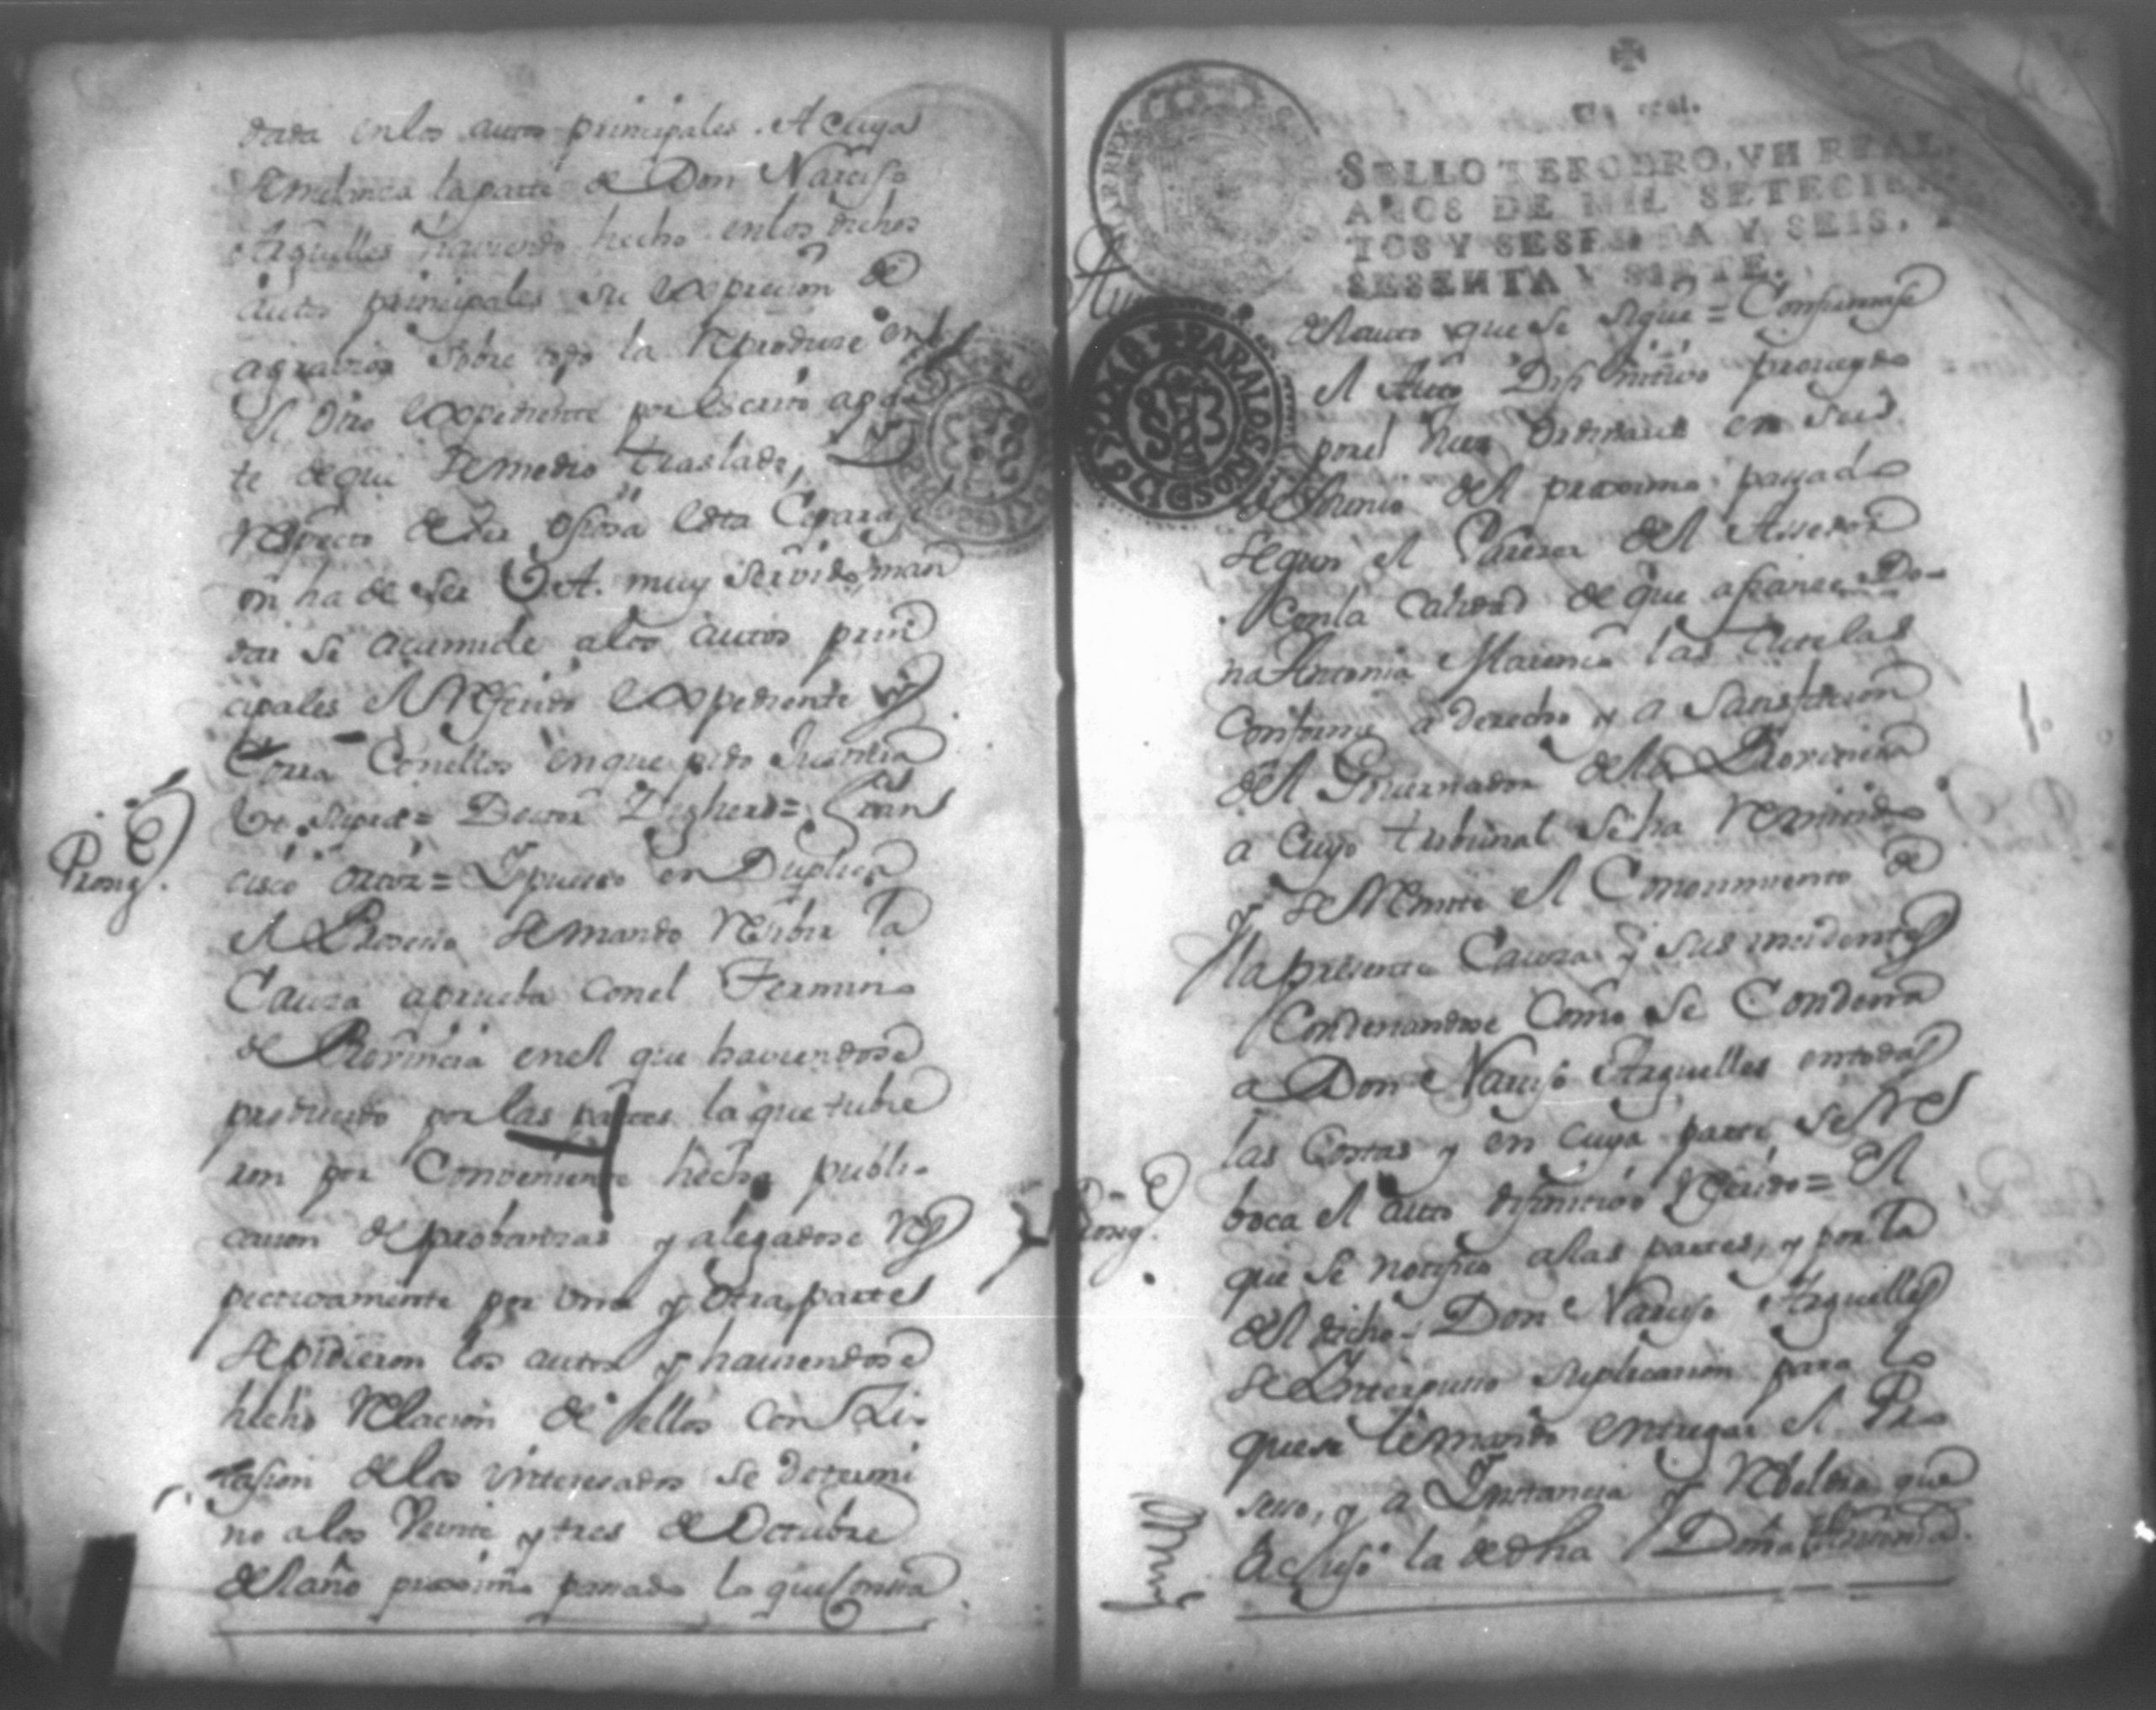 dada en los autos principales. A cuya
Semelanca la parte de Don Narciso
Arguelles haviendo hecho en los dichos
autos principales su expreción de
agravios sobre todo la Reproduce en
el otro expediente por Escrito apar
te de que Semedio traslado,
respecto de ser ociosa esta Separaci
on ha de ser V.A. muy servido man
dar se acumule alos autos prin
cipales el Referido expediente y
Corra Conellos enque pido Justicia
Vt. supra= Doctor = Fran
cisco = Ypuesto en Duplica
el Proceso Semando Recibir la
Causa aprueba conel Termino
de Provincia enel que haviendose
producido por las partes la que tubie
ron por Conveniente hecha publi-
cacion de probanzas y alegadose Res
pectivamente por una y otra partes
Sepidieron los autos y haviendose
hecho Relacion de ellos con Zi-
tasion delos interesados se determi
no alos Veinte y tres de Octubre
del año proximo pasado lo que Contra
Prosig.
Vn real.
SELLO TERCERO, VN REAL,
AÑOS DE MIL SETECIEN
TOS Y SESENTA Y SEIS, Y
SESENTA Y SIETE.
Auto
PARA LOS AÑOS D 1767 Y 68
del auto que se sigue = Confirmase
el Auto Difinitivo proveydo
porel Juez Ordinario en seis
de Junio del proximo pasado
segun el Parecer del Assesor
Conla calidad de que afiance Do-
na Antonia las tutelas
Conforme a derecho y a Satisfacion
del Governador dela Provincia
a cuyo tribunal Se ha Remitido
y se Remite el Conosimiento de
la presente Causa y sus incidentes
Condenandose Como se Condena
a Don Narciso Arguelles entodas
las Costas y en cuya parte Se Re
boca el auto difinitivo referido= El
que se notifico alas partes, y por la
del dicho Don Narciso Arguelles
se Interpuso suplicacion para lo
quese lemando entregar el Pro
seso, y a Ynstancia y Rebeldia que
le acuso la de dha Doña Antonia.
Prosig.